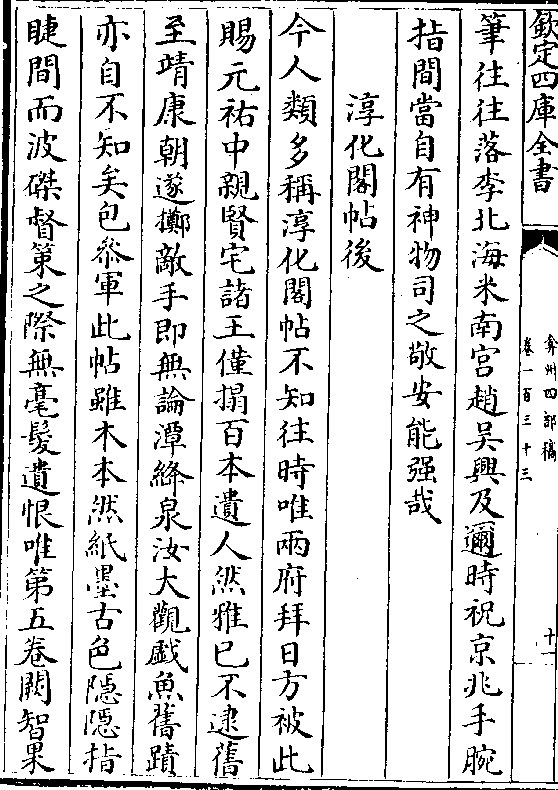 欽定四庫全書
弇州四部稿
卷一百三十三
十一
筆往往落李北海米南宮趙吳興及邇時祝京兆手腕
指間當自有神物司之敬安能强哉
淳化閣帖後
今人類多稱淳化閣帖不知往時唯兩府拜日方被此
賜元祐中親賢宅諸王僅搨百本遺人然雅已不逮舊
至靖康朝遂擲敵手即無論潭絳泉汝大觀戲魚舊蹟
亦自不知矣包叅軍此帖雖木本然紙墨古色隱隱指
睫間而波磔督策之際無毫髮遺恨唯第五卷闕智果